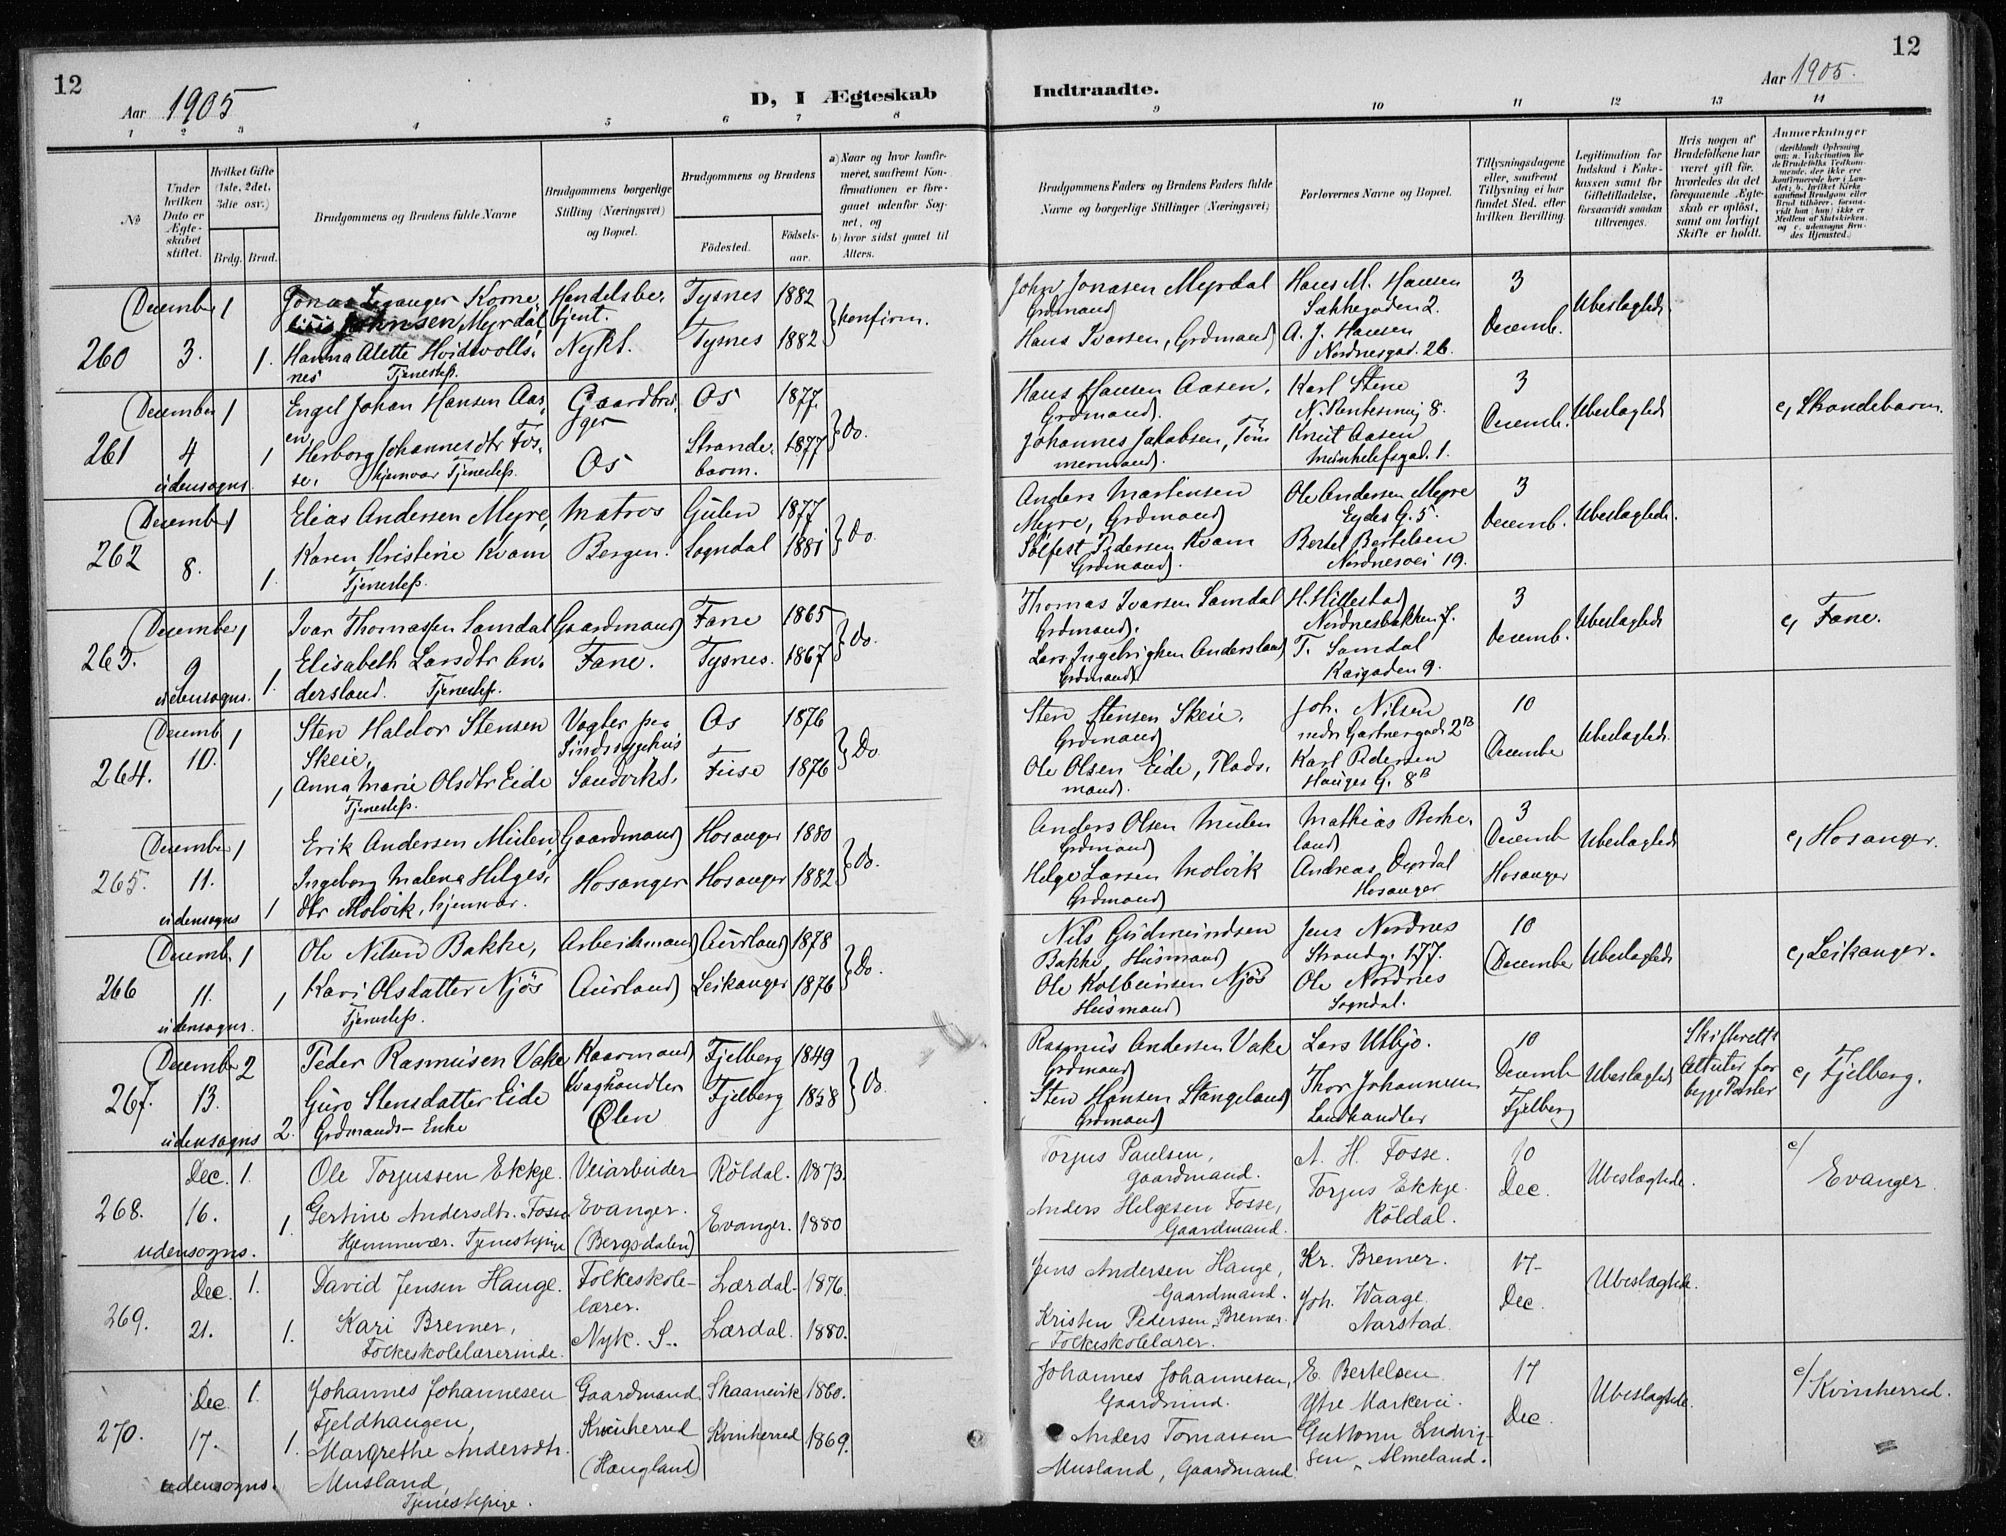 12
Aar 1905
D, I Ægteskab
1 2 3 4 5 6 7 8
№
Under hvilken Dato er Ægteskabet stiftet.
Hvilket Gifte (1ste, 2det, 3die osv.)
Brdg. Brud.
Brudgommens og Brudens fulde Navne
Brudgommens borgerlige Stilling (Næringsvei) og Bopæl.
Brudgommens og Brudens
Fødested.
Fødselsaar.
a) Naar og hvor konfirmeret, saafremt Konfirmationen er foregaaet udenfor Sognet, og
b) hvor sidst gaaet til Alters.
260
December 3. 1 1.
Jonas Korne
Johnsen Myrdal,
Hanna Alette Hvidevolls-
nes Tjenestep.
Handelsbe-
tjent.
Nykt.
Tysnes 1882
Tysnes 1882
konfirm.
261
December 4 1 1
udensogns.
Engel Johan Hansen Aas-
en,
Herborg Johannesdtr Fos-
se. hjemvær Tjenestep.
Gaardbru-
ger
Os
Os 1877.
Strande-
barm. 1877
Do.
262
December 8. 1 1.
Elias Andersen Myre,
Karen Kristine Kvam
Tjenestep.
Matros
Bergen.
Gulen 1877
Sogndal 1881
Do.
263.
December 9 1 1.
udensogns.
Ivar Thomassen Samdal
Elisabeth Larsdtr An-
dersland. Tjenestep.
Gaardmand
Fane.
Fane 1865
Tysnes. 1867
Do.
264.
Decemb. 10. 1 1
Sten Haldor Stensen
Skeie,
Anna Marie Olsdtr Eide
Tjenestep.
Vogter paa
Sindssygehus
Sandvikt.
Os 1876
Fuse 1876
Do.
265.
December 11. 1 1
udensogns
Erik Andersen Mulen,
Ingeborg Malena Helges-
dtr Molvik, hjemvær.
Gaardmand
Hosanger
Hosanger 1880
Hosanger 1882
Do.
266
Decemb. 11. 1 1
udensogns.
Ole Nilsen Bakke,
Kari Olsdatter Njøs
Tjenestep.
Arbeidsmand
Aurland
Aurland 1878
Leikanger 1876
Do.
267.
December 13. 2 2.
udensogns
Peder Rasmusen Vake
Guro Stensdatter Eide
Grdmands-Enke
Kaarmand
Kvaghandler
Ølen
Fjelberg 1849
Fjelberg 1858
Do.
268.
Dec. 16. 1. 1.
udensogns.
Ole Torjussen Ekkje
Gertine Andersdtr. Fosse
Hjemmevær. Tjenestepige
Veiarbeider
Evanger.
(Bergsdalen)
Røldal. 1873.
Evanger. 1880
269.
Dec. 21. 1. 1.
David Jensen Hauge.
Kari Bremer,
Folkeskolelærerinde.
Folkeskole-
lærer.
Nyk. S..
Lærdal. 1876
Lærdal. 1880.
270.
Dec 17. 1. 1.
udensogns.
Johannes Johannesen
Fjeldhaugen,
Margrethe Andersdtr.
Musland,
Tjenestepige.
Gaardmand
Kvinherred
(Haugland)
Skaanevik 1860.
Kvinherred 1869.
12
Indtraadte.
Aar 1905.
9 10 11 12 13 14
Brudgommens Faders og Brudens Faders fulde Navne og borgerlige Stillinger (Næringsvei)
Forlovernes Navne og Bopæl.
Tillysningsdagene eller, saafremt Tillysning ei har fundet Sted, efter hvilken Bevilling.
Legitimation for Indskud i Enkekassen samt for Giftetilladelse, forsaavidt saadan tiltrænges.
Hvis nogen af Brudefolkene har været gift før, hvorledes da det foregaaende Ægteskab er opløst, samt om lovligt Skifte er holdt.
Anmærkninger (deriblandt Oplysning om: a. Vakcination for de Brudefolks Vedkommende, der ikke ere konfirmerede her i Landet; b. hvilket Kirkesamfund Brudgom eller Brud tilhører, forsaavidt han (hun) ikke er Medlem af Statskirken, og c. udensogns Brudes Hjemsted.)
John Jonasen Myrdal
Grdmand
Hans Ivarsen, Grdmand
Hans M. Hansen
Sækkegaden 2.
A. J. Hansen
Nordnesgad. 26.
3
Decemb.
Ubeslægtede.
Hans Hansen Aasen,
Grdmand.
Johannes Jakobsen, Tøm
mermand.
Karl Stene
8.
Knut Aasen
Munkelifsgad. 1.
3
Decemb.
Ubeslægtede
c, Strandebarm.
Anders Martinsen
Myre, Grdmand
Sølfest Pedersen Kvam
Grdmand.
Ole Andersen Myre
Eydes G. 5.
Bertel Bertelsen
Nordnesvei 19.
3
Decemb.
Ubeslægtede.
Thomas Ivarsen Samdal
Grdmand.
Lars Ingebrigtsen Andersland
Grdmand
H. Hillestad
Nordnesbakken 7.
T. Samdal
Kaigaden 9.
3
Decemb.
Ubeslægtede
c, Fane.
Sten Stensen Skeie,
Grdmand
Ole Olsen Eide, Plads-
mand.
Joh. Nilsen
nedr Gartnergade 2B
Karl Pedersen
Hauges G. 8B
10
December
Ubeslægtede.
Anders Olsen Mulen
Grdmand
Helge Larsen Molvik
Grdmand
Mathias Berke-
land
Andreas Dyrdal
Hosanger
3
Decemb
Hosanger
Ubeslægtede
c, Hosanger.
Nils Gudmundsen
Bakke, Husmand
Ole Kolbeinsen Njøs
Husmand
Jens Nordnes
Strandg. 177.
Ole Nordnes
Sogndal.
10
December
Ubeslægtede
c, Leikanger.
Rasmus Andersen Vake
Grdmand
Sten Hansen Stangeland
Grdmand
Lars Utbjo.
Thor Johannesen
Landhandler
10
Decemb
Fjelberg
Ubeslægtede
Skifteretts
Attester for
begge Parter
c, Fjelberg.
Torjus Paulsen,
Gaardmand.
Anders Helgesen Fosse,
Gaardmand.
A. H. Fosse.
Torjus Ekkje.
Røldal.
10
Dec.
Ubeslægtede.
c/ Evanger.
Jens Andersen Hauge,
Gaardmand.
Kristen Pedersen Bremer.
Folkeskolelærer.
Kr. Bremer.
Joh. Waage.
Aarstad.
17
Dec.
Ubeslægtede.
Johannes Johannesen,
Gaardmand.
Anders Tomassen
Musland, Gaardmand
E. Bertelsen
Ytre Markevei.
Guttorm Ludvig-
sen Almeland.
17
Dec.
Ubeslægtede.
c/ Kvinherred.